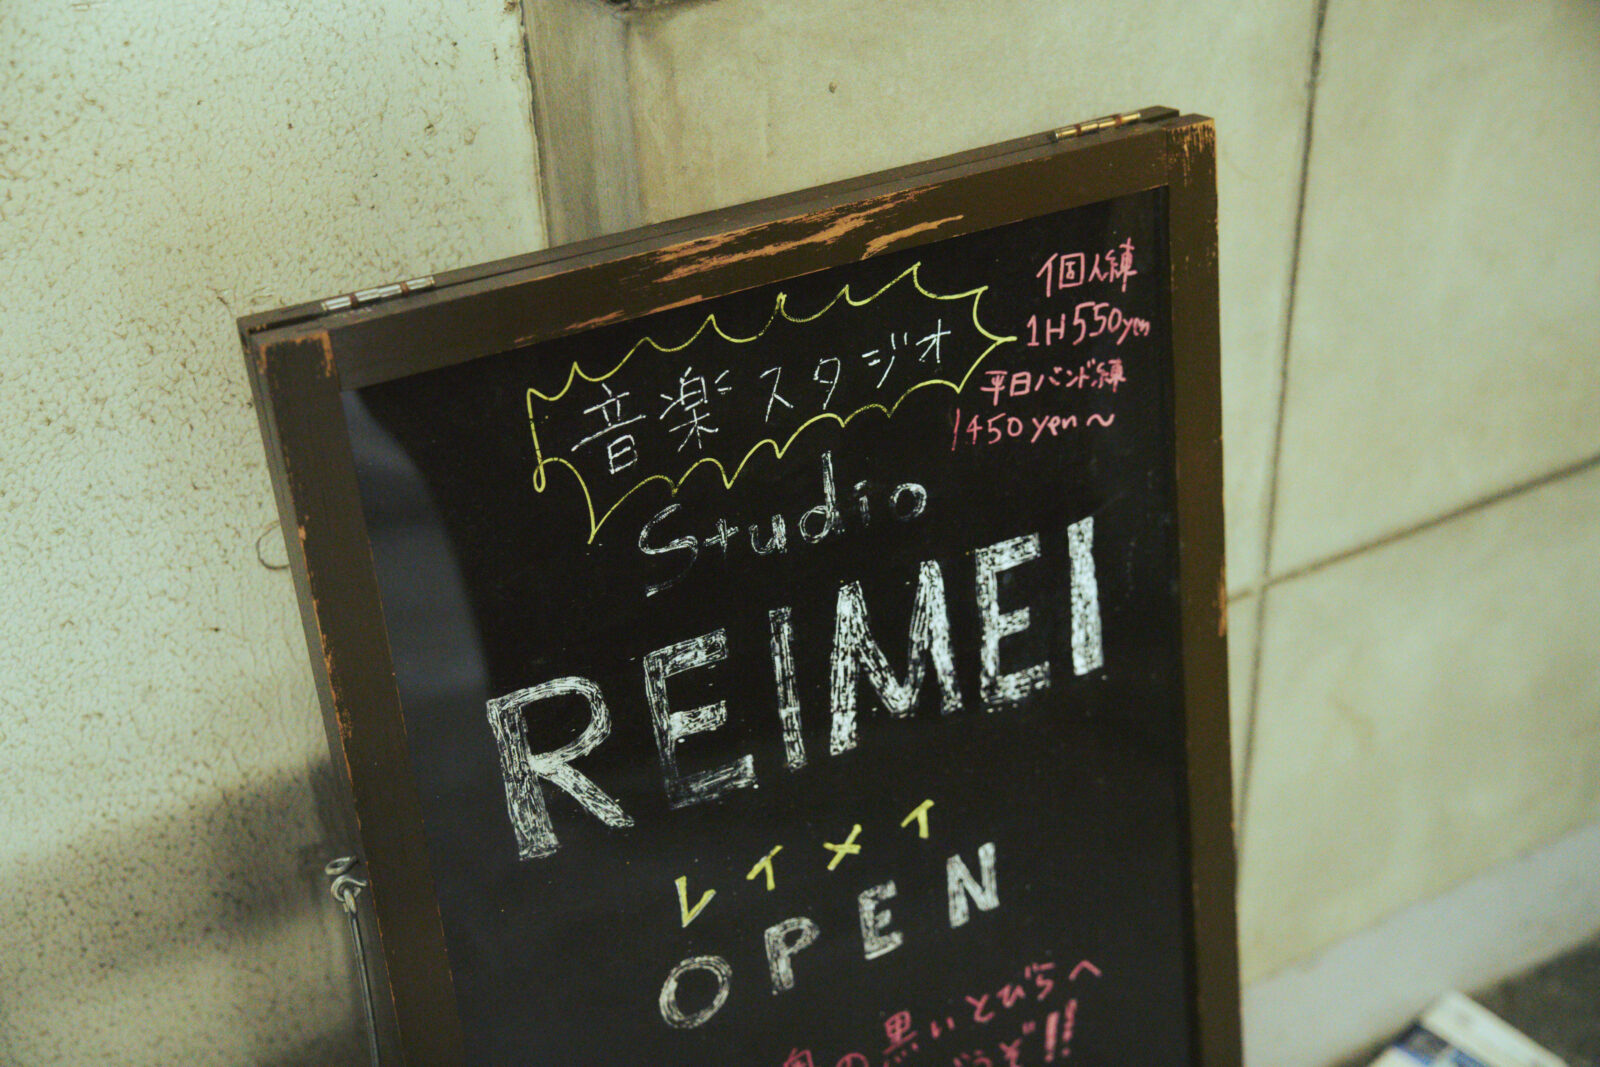 音楽スタジオ
個人練
1H550yen
平日バンド練
1450yen〜
Studio
REIMEI
レイメイ
OPEN
奥の黒いとびらへ
どうぞ!!